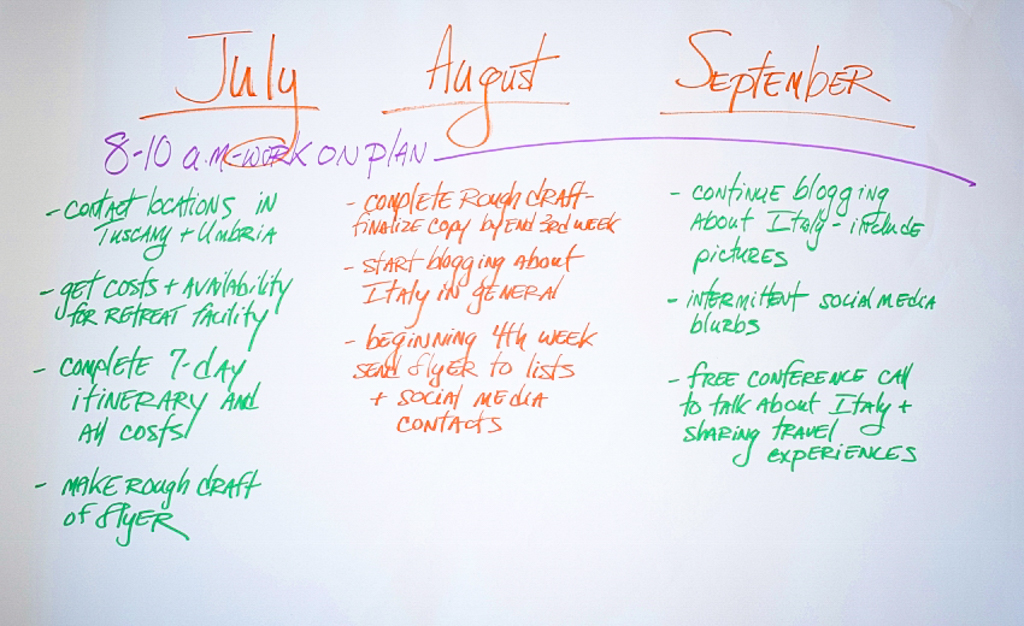 July
August
September
8-10 a.m-WORK ON PLAN
- CONTACT LOCATIONS IN
TUSCANY + UMBRIA
- get COSTS + AVAILABILITY
FOR RETREAT facility
- COMPLETE 7-DAY
ITINERARY AND
All COSTS
- MAKE ROUGH DRAFT
of flyER
- COMPLETE ROUGH DRAFT-
finalize COPY by END 3rd WEEK
- START blogging ABOUT
ITALY IN GENERAL
- bEGINNING 4th WEEK
SEND flyER to lists
+ SOCIAL MEDIA
CONTACTS
- CONTINUE blogging
About ITALY - INCLUDE
pictures
- INTERMITTENT SOCIAL MEDIA
blURbS
- FREE CONFERENCE CALL
to talk About ITALY +
SHARING TRAVEL
EXPERIENCES